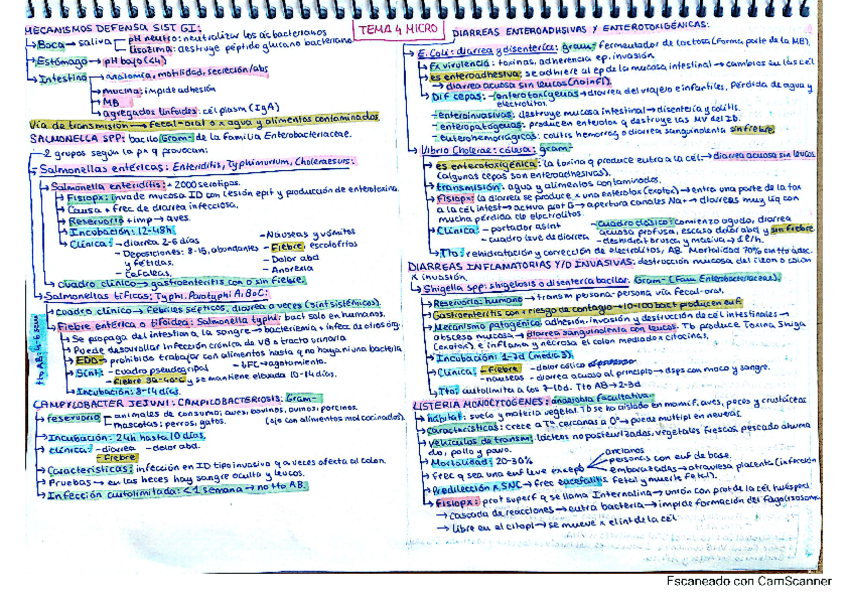 TEMA 4 MICRO
MECANISMOS DEFENSA SIST GI:
→ Boca → saliva pH neutro: neutralizar los ác bacterianos
lisozima: destruye péptido glucano bacteriano
→ Estómago → pH bajo (<4)
→ Intestino → anatomía, motilidad, secreción/abs
→ mucina: impide adhesión
→ MB
→ agregados linfoides: cél plasm (IgA)
Vía de transmisión → fecal-oral o x agua y alimentos contaminados
SALMONELLA SPP: bacilo Gram- de la familia Enterobacteriaceae.
2 grupos según la px q provocan:
→ Salmonellas entéricas: Enteriditis, Typhimurium, Choleraesuis:
→ Salmonella enteriditis: + 2000 serotipos.
→ Fisiopx: invade mucosa ID con lesión epit y producción de enterotoxina
→ Causa + frec de diarrea infecciosa.
→ Reservorio + imp → aves.
→ Incubación: 12-48h
→ Clínica: - diarrea 2-6 días
- Deposiciones: 8-15, abundantes y fétidas.
- Cefaleas
- Náuseas y vómitos
- Fiebre, escalofríos
- Dolor abd
- Anorexia
→ Cuadro clínico → gastroenteritis con o sin fiebre.
→ Salmonellas tíficas: Typhi, Paratyphi A, B o C:
→ cuadro clínico → febriles sépticos, diarrea a veces (sint sistémicos).
→ Fiebre entérica o tifoidea: Salmonella typhi: bact solo en humanos.
→ Se propaga del intestino a la sangre → bacteriemia + infec de otros órg.
→ Puede desarrollar infección crónica de VB o tracto urinario
→ EDO → prohibido trabajar con alimentos hasta q no haya ninguna bacteria
→ Sint: - cuadro pseudogripal - LFC → agotamiento.
- fiebre 39-40ºC y se mantiene elevada 10-14 días.
→ Incubación: 8-14 días.
tto AB: 4-6 sem
CAMPYLOBACTER JEJUNI: CAMPILOBACTERIOSIS: Gram-
→ reservorio animales de consumo: aves, bovinos, ovinos, porcinos
mascotas: perros, gatos. (ojo con alimentos mal cocinados).
→ Incubación: 24h hasta 10 días.
→ clínica: - diarrea - dolor abd.
- Fiebre
→ Características: infección en ID tipo invasivo q a veces afecta al colon
→ Pruebas → en las heces hay sangre oculta y leucos.
→ Infección autolimitada: <1 semana → no tto AB.
DIARREAS ENTEROADHESIVAS Y ENTEROTOXIGÉNICAS:
→ E. Coli: diarrea y disentérica: gram- fermentador de lactosa (Forma parte de la MB).
→ Fx virulencia: toxinas, adherencia ep, invasión.
→ es enteroadhesiva: se adhiere al ep de la mucosa intestinal → cambios en las cél
→ diarrea acuosa sin leucos (no infl).
→ Dif cepas: - enterotoxígenas → diarrea del viajero e infantiles. Pérdida de agua y electrolitos.
- enteroinvasivas: destruye mucosa intestinal → disentería y colitis.
- enteropatógenas: producen enterotox q destruye las MV del ID.
- enterohemorrágicas: colitis hemorrag o diarrea sanguinolenta sin fiebre.
→ Vibrio Cholerae: causa: gram-
→ es enterotoxigénica: la toxina q produce entra a la cél → diarrea acuosa sin leucos
(algunas cepas son enteroadhesivas).
→ transmisión: agua y alimentos contaminados.
→ Fisiopx: la diarrea se produce x una enterotox (exotox) → entra una parte de la tox
a la cél intest → activa prot G → apertura canales Na+ → diarreas muy líq con
mucha pérdida de electrolitos.
→ Clínica: - portador asint
- cuadro leve de diarrea
- cuadro clásico: comienzo agudo, diarrea
acuosa profusa, escaso dolor abd y sin fiebre
- deshidrat brusca y masiva → 1 l/h.
→ Tto: rehidratación y corrección de electrolitos, AB. Mortalidad 70% sin tto adec.
DIARREAS INFLAMATORIAS Y/O INVASIVAS: destrucción mucosa del íleon o colon
x invasión
→ Shigella spp: shigelosis o disentería bacilar. Gram- (Fam Enterobacteriaceae).
→ Reservorio: humano → transm persona-persona vía fecal-oral.
→ Gastroenteritis con + riesgo de contagio → 10-100 bact producen enf.
→ Mecanismo patogénico: adhesión, invasión y destrucción de cél intestinales →
absceso mucosa → diarrea sanguinolenta con leucos. Tb produce Toxina Shiga
(exotox) e inflama y necrosa el colon mediado x citocinas.
→ Incubación: 1-7d (media 3).
→ Clínica: - Fiebre - dolor cólico
- náuseas - diarrea acuosa al principio → dsps con moco y sangre.
→ Tto: autolimita a los 7-10d. Tto AB → 2-3d
LISTERIA MONOCYTOGENES: anaerobia facultativa
→ hábitat: suelo y materia vegetal. Tb se ha aislado en mamíf, aves, peces y crustáceos
→ características: crece a Tº cercanas a 0º → puede multipl en neveras.
→ vehículos de transm: lácteos no pasteurizados, vegetales frescos, pescado ahuma
do, pollo y pavo.
→ Mortalidad: 20-30%
→ frec q sea una enf leve excepto ancianos
personas con enf de base.
embarazadas → atraviesa placenta (infección
fetal y muerte fetal).
→ Predilección x SNC → frec encefalitis
→ Fisiopx: prot superf q se llama Internalina → unión con prot de la cél huésped
→ cascada de reacciones → entra bacteria → impide formación del fagolisosoma
→ libre en el citopl → se mueve x el int de la cél
Escaneado con CamScanner